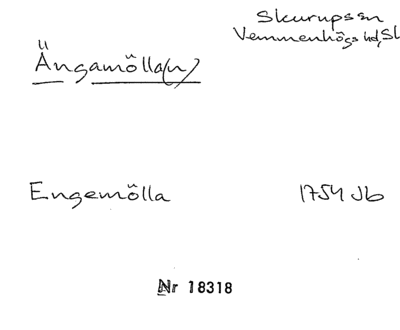 Skurups sn
Vemmenhögs hd, Sk
Ängamölla(n)
Engemölla 1754 Jb
Nr 18318